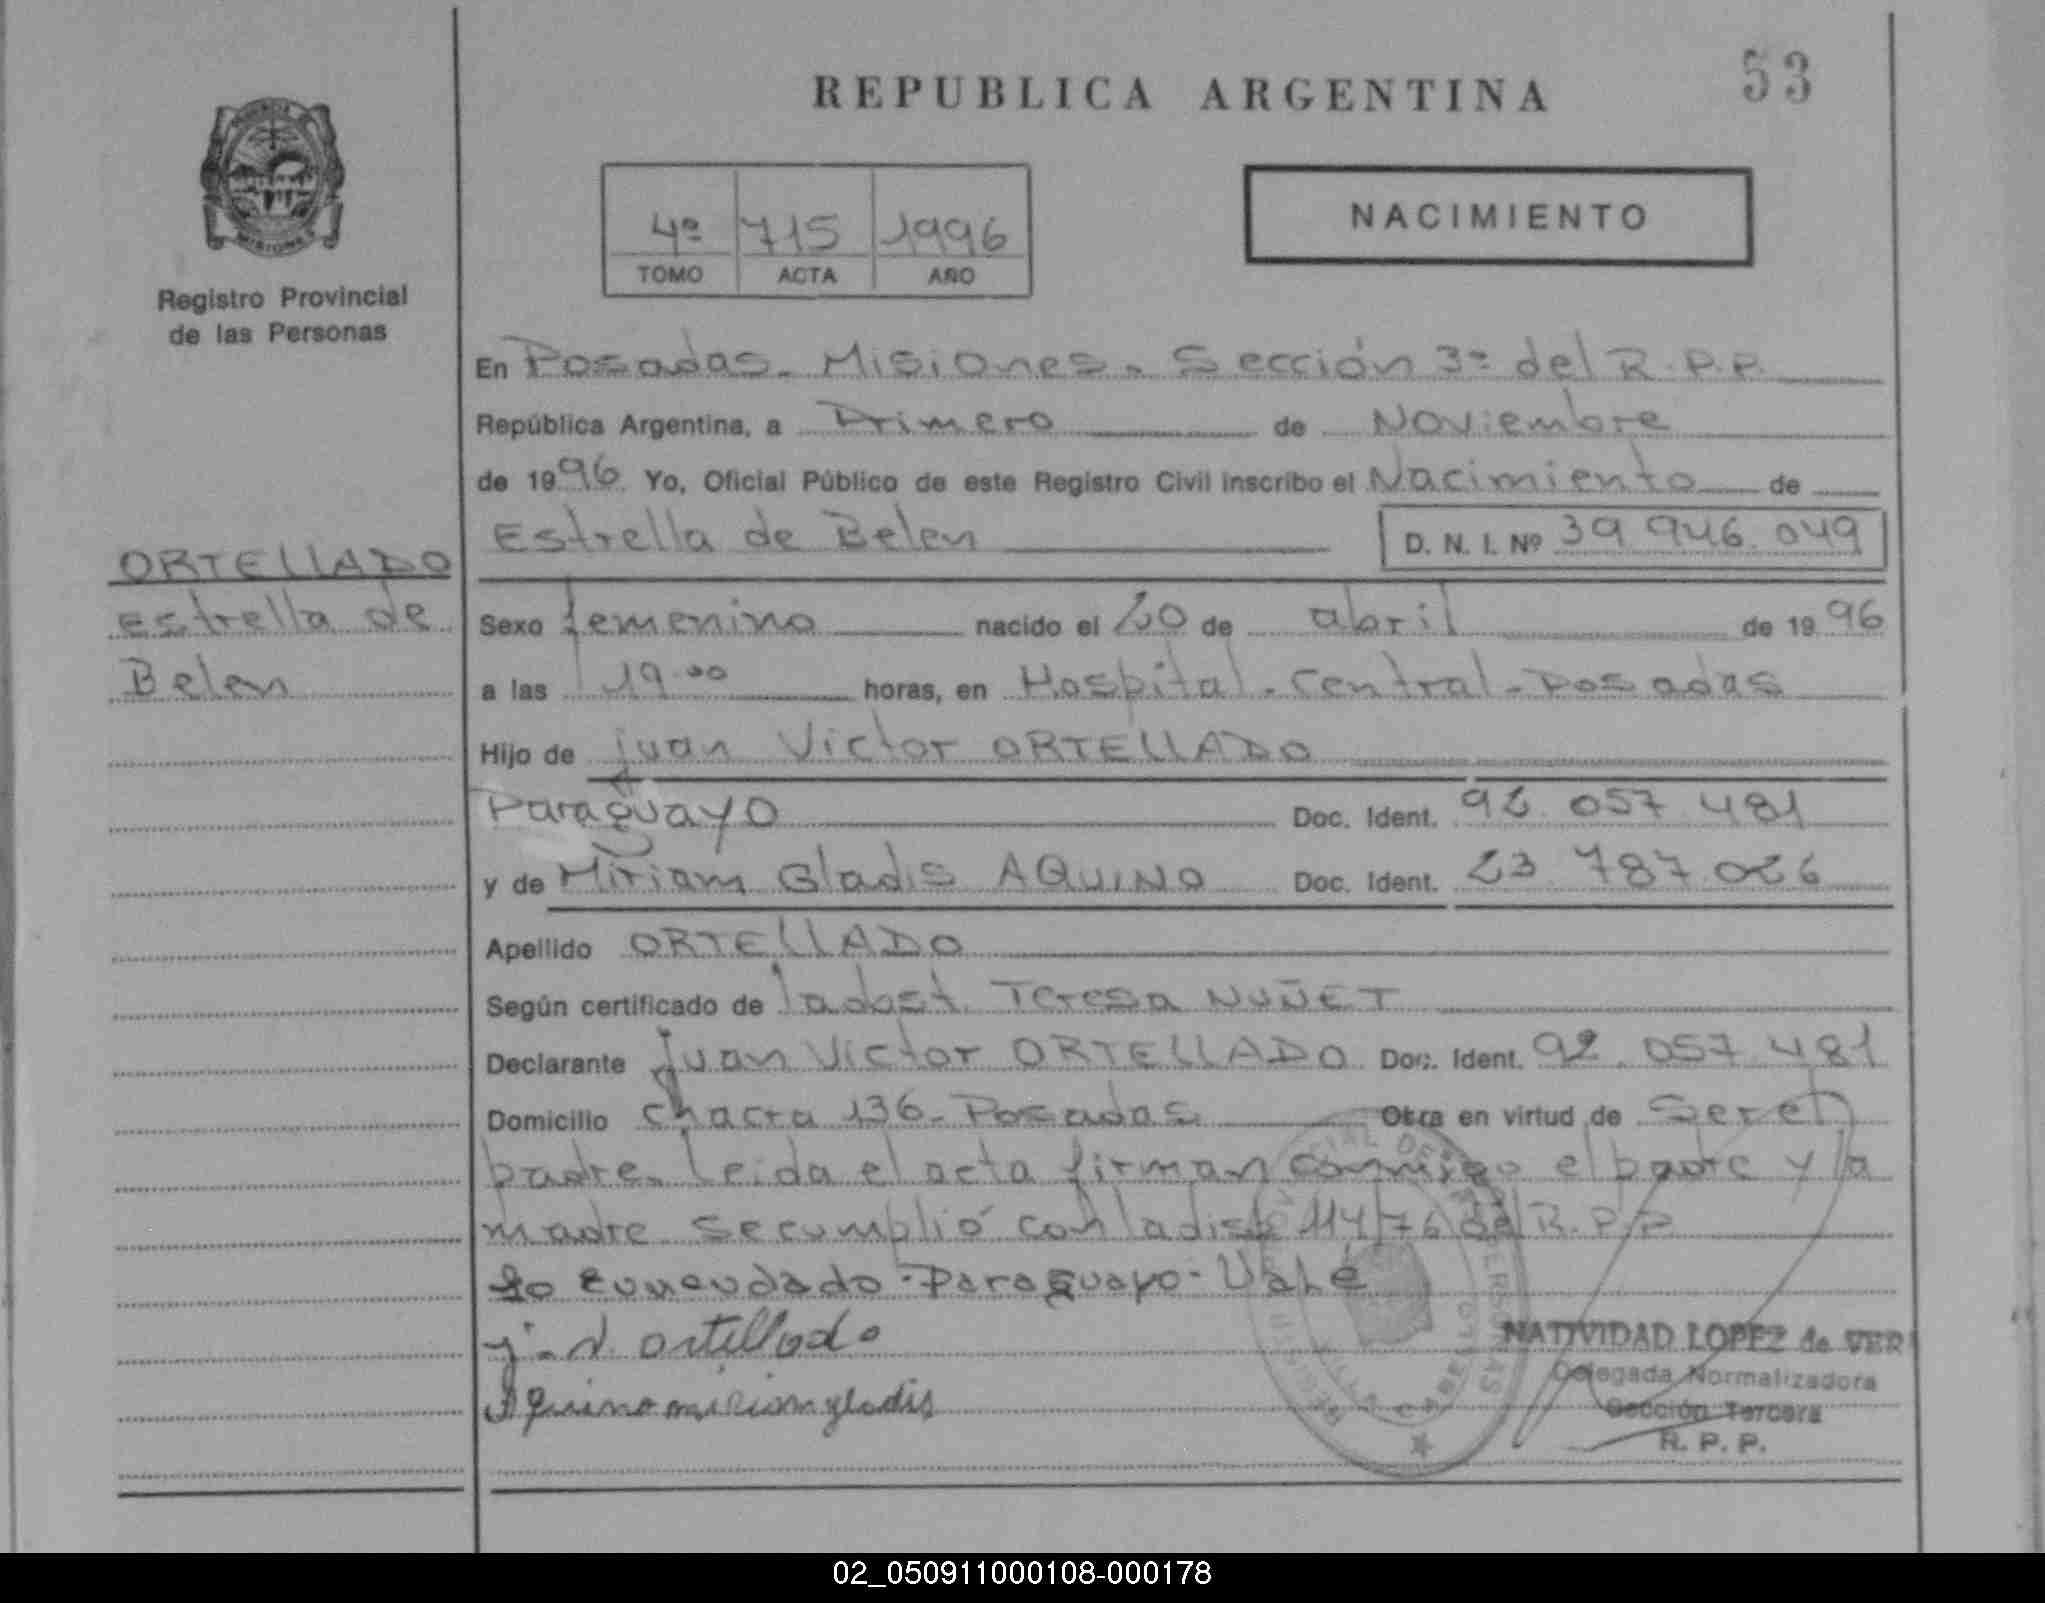 53
REPUBLICA ARGENTINA
4º 715 1996
TOMO ACTA AÑO
NACIMIENTO
MISIONES
Registro Provincial
de las Personas
En Posadas - Misiones - Sección 3ª del R.P.P.
República Argentina, a Primero de Noviembre
de 1996 Yo, Oficial Público de este Registro Civil inscribo el Nacimiento de
Estrella de Belen D. N. I. Nº 39 946.049
ORTELLADO
Estrella de
Belen
Sexo femenino nacido el 20 de abril de 1996
a las 19.00 horas, en Hospital - Central - Posadas
Hijo de juan Victor ORTELLADO
Paraguayo Doc. Ident. 92.057.481
y de Miriam Gladis AQUINO Doc. Ident. 23.787.026
Apellido ORTELLADO
Según certificado de Teresa NUÑET
Declarante juan Victor ORTELLADO Doc. Ident. 92.057.481
Domicilio chacra 136 - Posadas Otra en virtud de Ser el
padre. Leida el acta firman conmigo el padre y la
madre se cumplió con la disp. 114/76 del R.P.P.
Lo Enmendado - Paraguayo - Vale
j. V. ortellado
Aquino miriam gladis
NATIVIDAD LOPEZ de VER
Delegada Normalizadora
Sección Tercera
R. P. P.
02_050911000108-000178